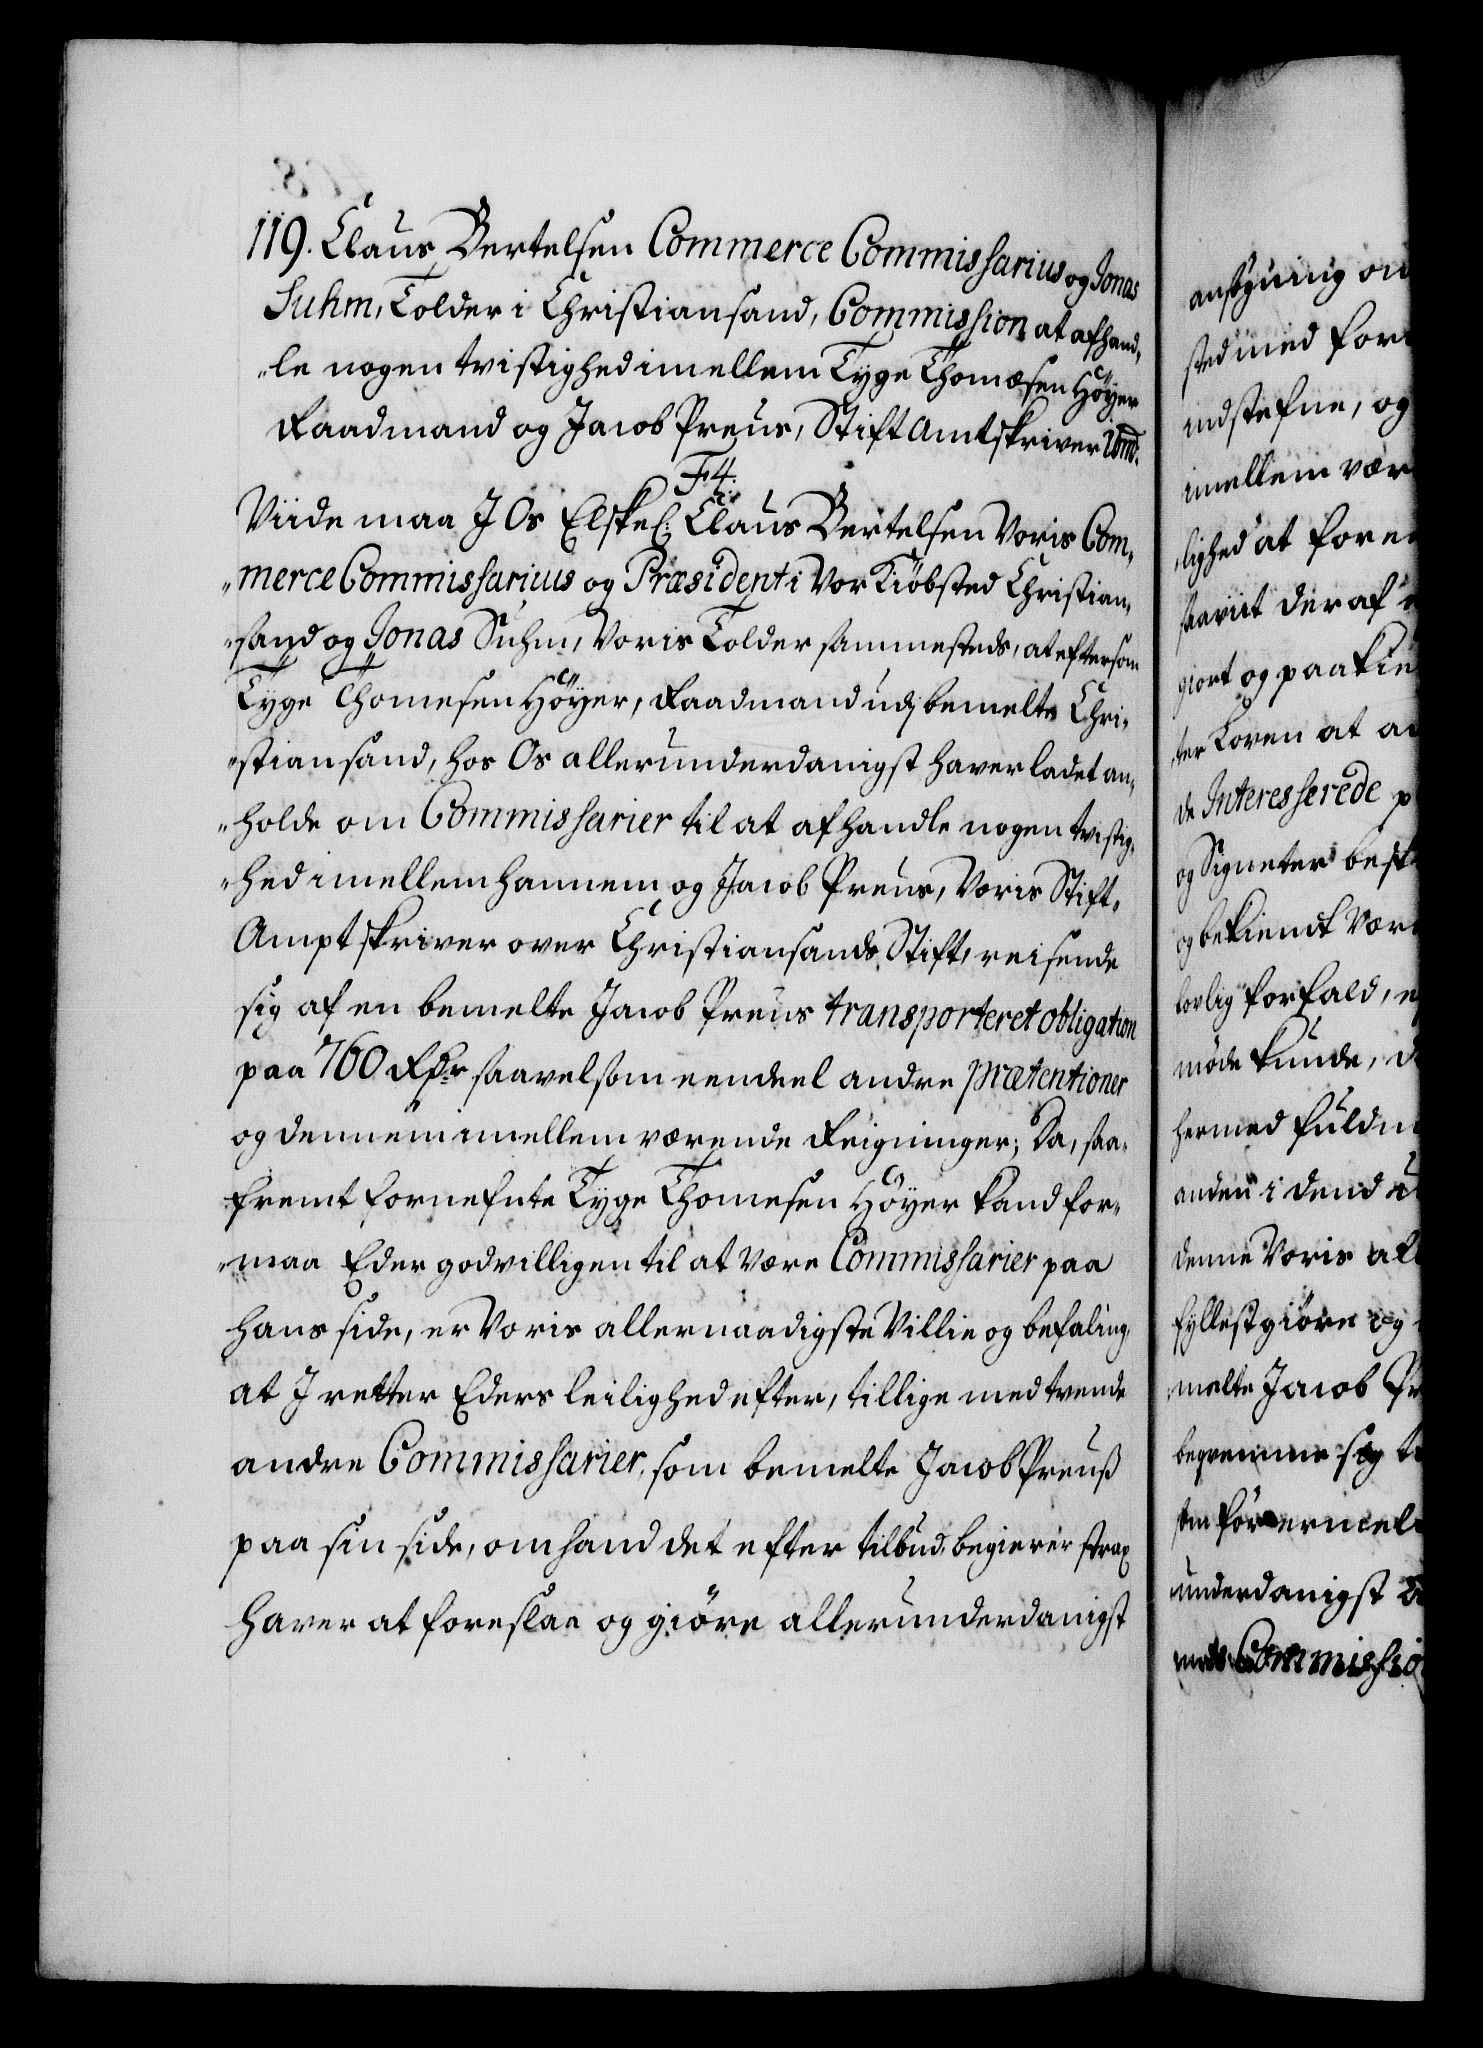 119. Claus Bertelsen Commerce Commissarius og Jonas
Suhm, Tolder i Christiansand, Commission at afhand„
„le nogen tvistighed imellem Tyge Thomæsen Höyer
Raadmand og Jacob Preus, Stift Amtskriver ibmd.
F4.
Viide maa J Os Elskel: Claus Bertelsen Voris Com„
„merce Commissarius og Præsident i Vor Kiöbsted Christian„
„sand og Jonas Suhm, Voris Tolder sammesteds, at eftersom
Tyge Thomesen Höyer, Raadmand udj bemelte Chri„
„stiansand, hos Os allerunderdanigst haver ladet an„
„holde om Commissarier til at afhandle nogen tvistig„
„hed imellem hannem og Jacob Preus, Voris Stift„
Amptskriver over Christiansands Stift, reisende
sig af en bemelte Jacob Preus transporteret obligation
paa 760 Rdr saavelsom eendeel andre prætentioner
og dennem imellem værende Reigninger; Da, saa„
fremt fornefnte Tyge Thomesen Höyer kand for„
„maa Eder godvilligen til at være Commissarier paa
hans side, er Voris allernaadigste Villie og befaling,
at J retter Eders leilighed efter, tillige med tvende
andre Commissarier, som bemelte Jacob Preuß
paa sin side, om hand det efter tilbud, begierer strax
haver at foreslaa og giöre allerunderdanigst
ansögning om
sted med for
indstefne, og
imellem vær
„lighed at foren
skarvit deraf
giort og paakie
„ter Loven at a
de Interesserede p
og Signeter best
og bekiendt Vær
lovlig forfald, e
möde kunde, d
hermed fuldm
anden i dend
denne Voris al
fyllestgiöre og
„melte Jacob Pr
beqvemme sig t
som for ermel
underdanigst
Commissio